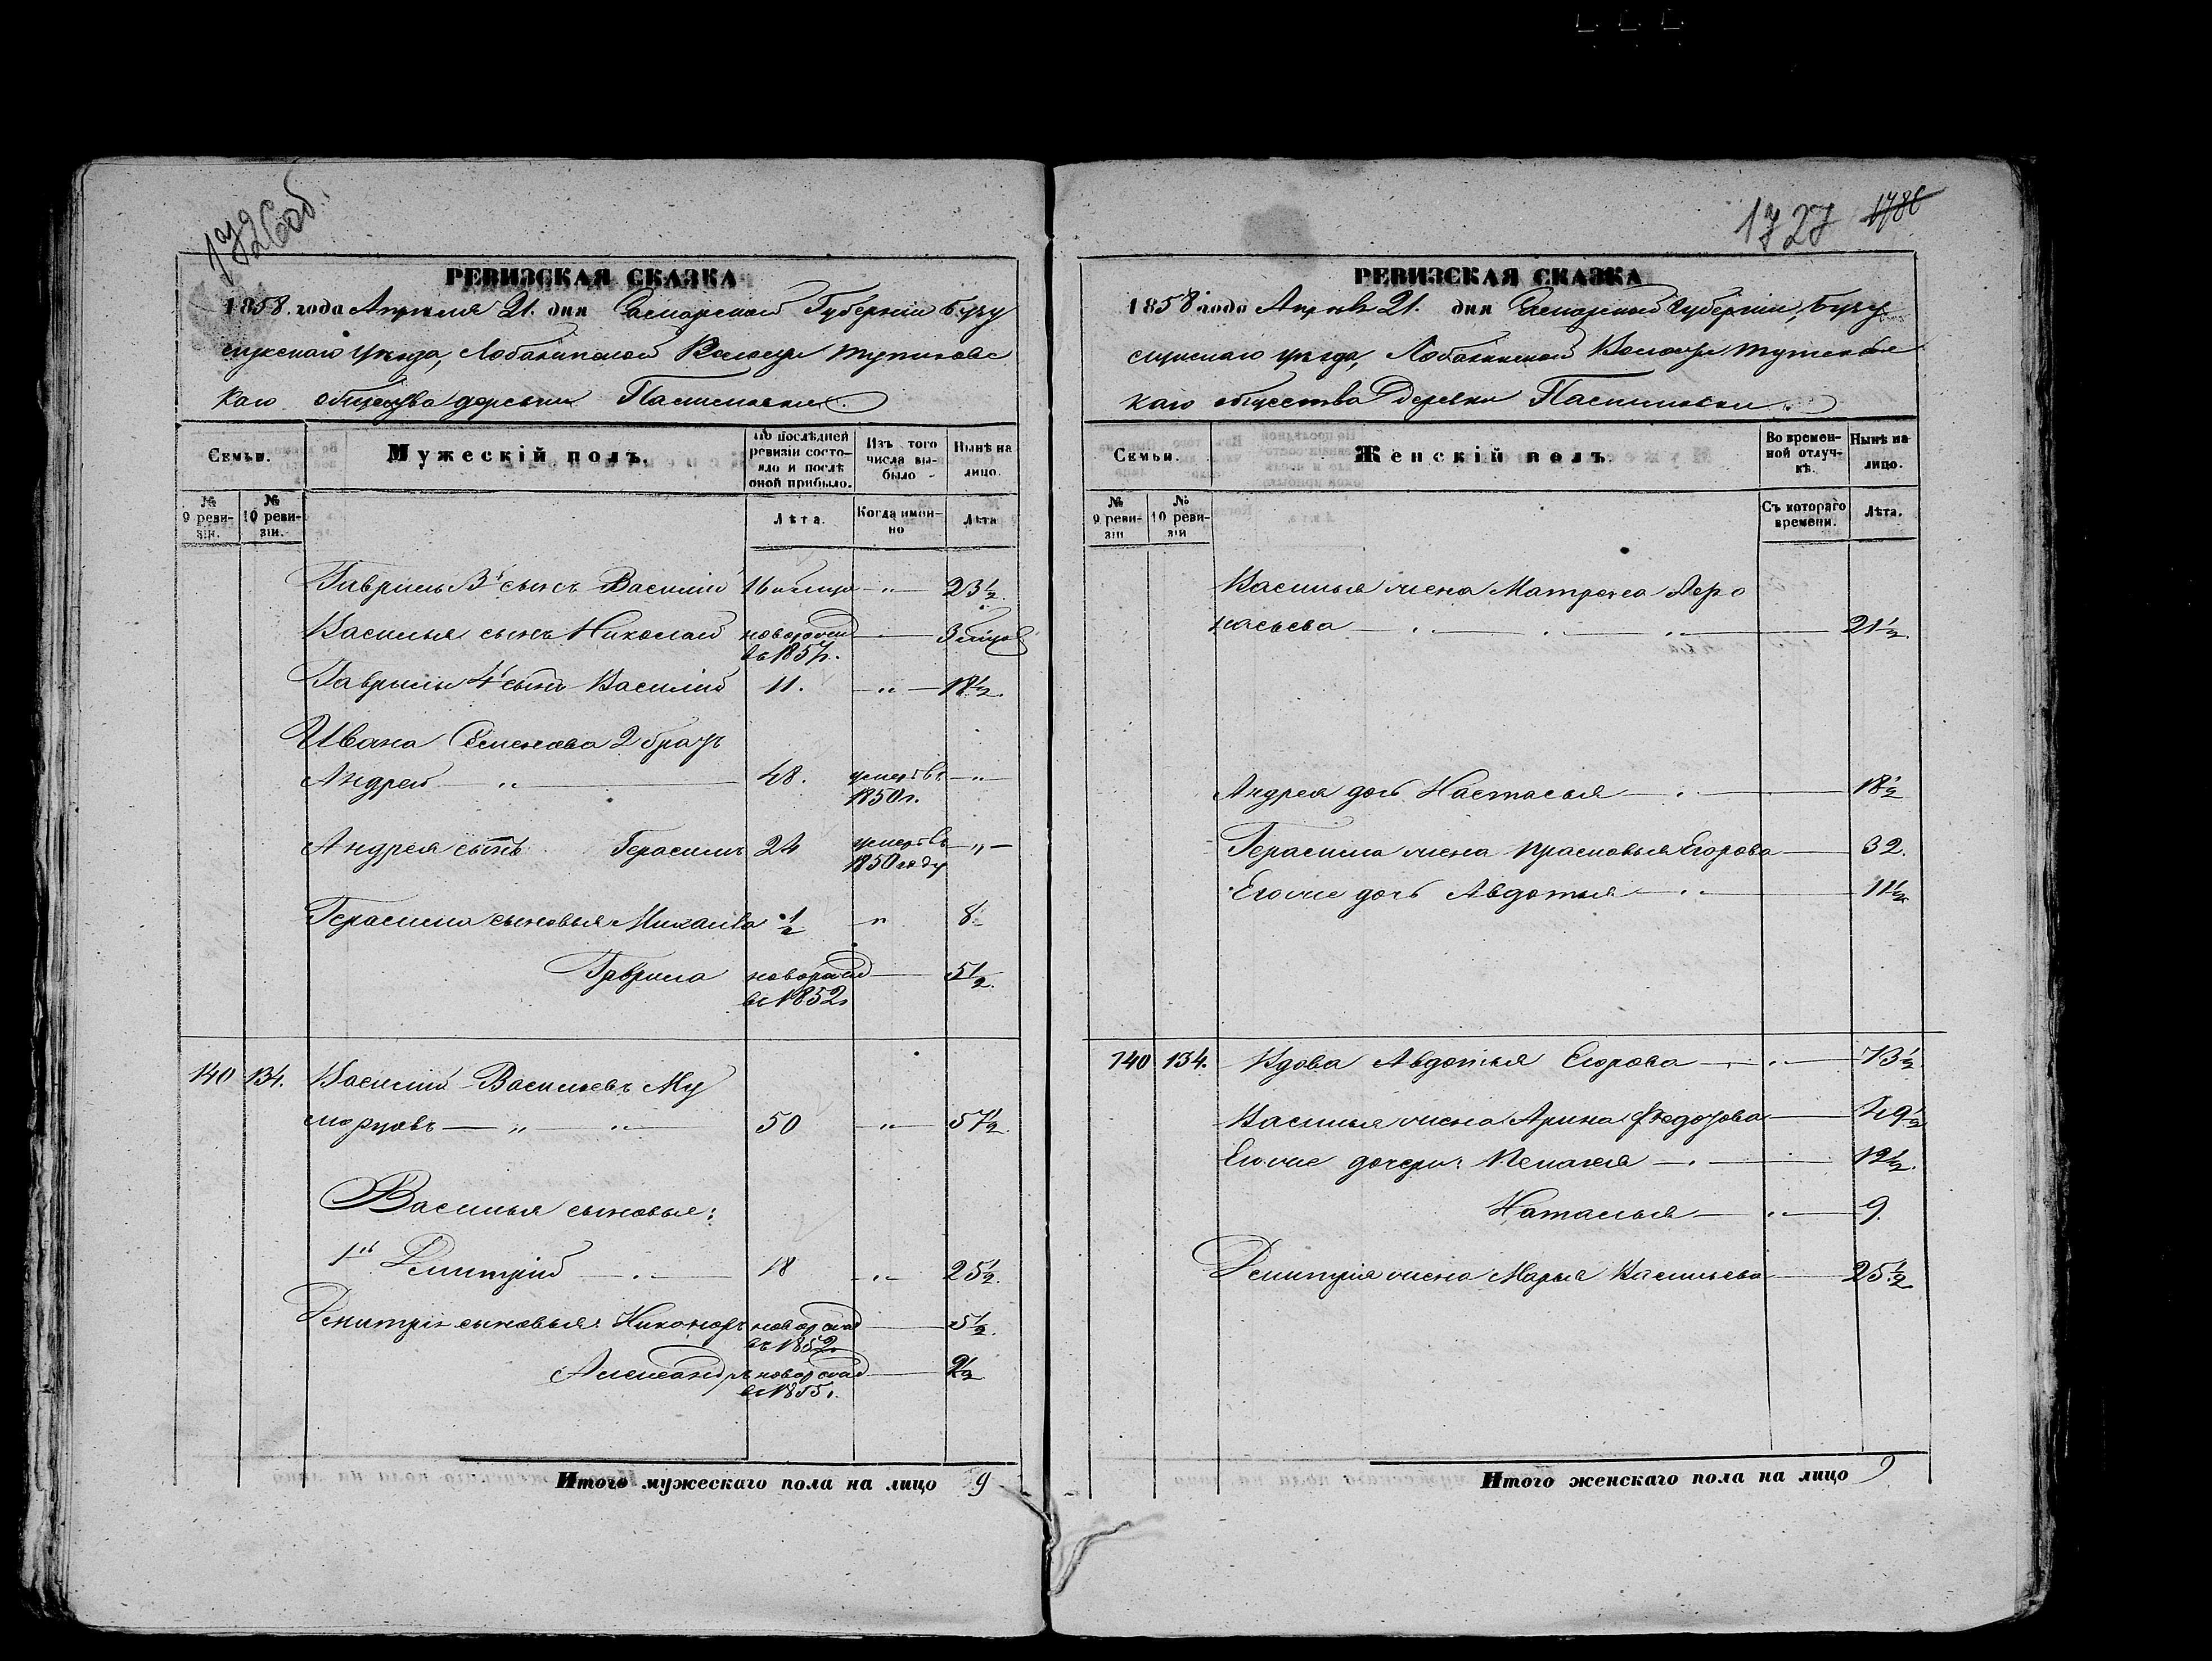 1726 об.
РЕВИЗСКАЯ СКАЗКА
1858. года Апреля 21. дня Самарской Губернии Бузу
лукскаго уѣзда, Лобазинской Волости
каго общества деревни
Семьи.
Мужескій полъ.
По послѣдней ревизіи состояло и послѣ оной прибыло.
Изъ того числа выбыло
Нынѣ на лицо.
№ 9 ревизіи.
№ 10 ревизіи.
Лѣта.
Когда именно
Лѣта
Гаврилы 3й сынъ Василій 16 " 23½.
Василья сынъ Николай новорожд въ 1857г.
Гаврилы 4й сынъ Василій 11. " 18½.
Ивана Семенова 2 братъ
Андрей " 48. умер въ 1850г. "
Андрея сынъ Герасимъ 24 умер въ 1850 году "
Герасима сыновья Михайла ½ " 8
Гаврила новорожд въ 1852г 5½.
140 134. Василій Васильевъ Му
" " 50 " 57½.
Василья сыновья:
1й Дмитрій 18 " 25½.
Дмитрія сыновья: Никаноръ новорожд въ 1852г 5½.
Александръ новорожд въ 1855г. 2½
Итого мужескаго пола на лицо 9
1727 1786
РЕВИЗСКАЯ СКАЗКА
1858 года Апрѣля 21. дня Самарской Губерніи, Бузу
лукскаго уѣзда, Лобазинской Волости
каго общества Деревни
Семьи.
Женскій полъ.
Во временной отлучкѣ.
Нынѣ на лицо.
№ 9 ревизіи
№ 10 ревизіи
Съ котораго времени.
Лѣта.
Василья жена Матрена
" 21½.
Андрея дочь Настасья 18½
Герасима жена Прасковья Егорова 32.
Его же дочь Авдотья 11½
140 134. Вдова Авдотья Егорова " 73½
Василья жена Арина Федотова 49½
Его же дочери: Пелагея 12½.
Наталья " 9.
Дмитрія жена Марья Васильева 25½
Итого женскаго пола на лицо 9